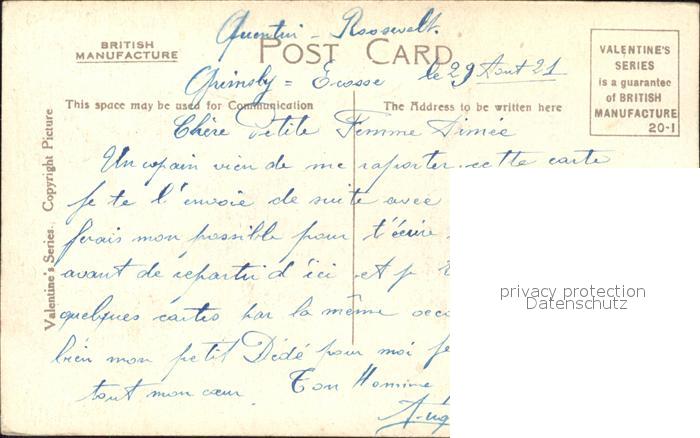 Quentin - Roosevelt.
BRITISH
MANUFACTURE
POST CARD
VALENTINE'S
SERIES
is a guarantee
of BRITISH
MANUFACTURE
20-1
Grimsby = Ecosse le 29 Aout 21
This space may be used for Communication
The Address to be written here
Chère Petite Femme Aimée
Un copain vien de me raporter cette carte
Je te l'envoie de suite avec
ferais mon possible pour t'écrire
avant de repartir d'ici et je
quelques cartes par la même occ
bien mon petit Dédé pour moi je
tout mon cœur Ton Homme
Valentine's Series. Copyright Picture
privacy protection
Datenschutz